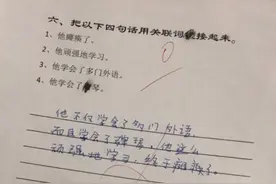 六、把以下四句话用关联词连接起来。
1、他瘫痪了。
2、他顽强地学习。
3、他学会了多门外语。
4、他学会了琴。
他不仅学会了多门外语,
而且学会了弹琴,他这么
顽强地学习,终于瘫痪了。